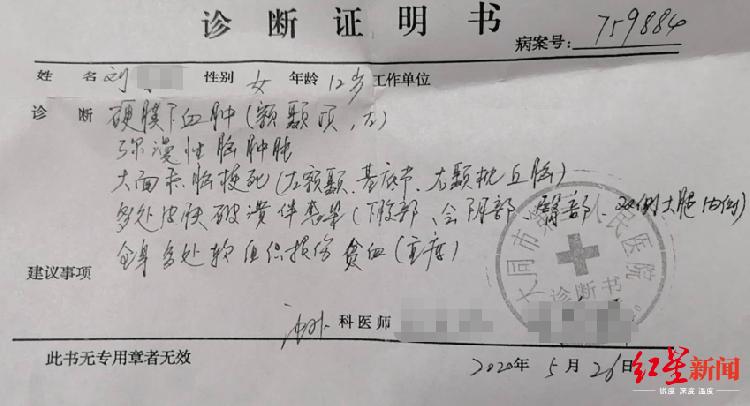 诊断证明书
病案号：759884
姓名 刘 性别 女 年龄 12岁 工作单位
诊断 硬膜下血肿（额颞顶、左）
弥漫性脑肿胀
大面积脑梗死（左额颞、基底节、右颞枕丘脑）
多处皮肤破溃伴感染（下腹部、会阴部、臀部、双侧大腿内侧）
全身多处软组织损伤 贫血（重度）
建议事项
大同市 人民医院
诊断书
科医师
此书无专用章者无效
2020年5月26
红星新闻
锐度 深度 温度